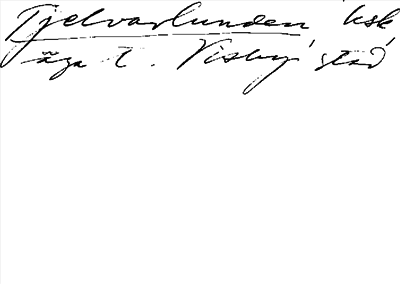 Tjelvarlunden, hsk,
äga t. Visby stad